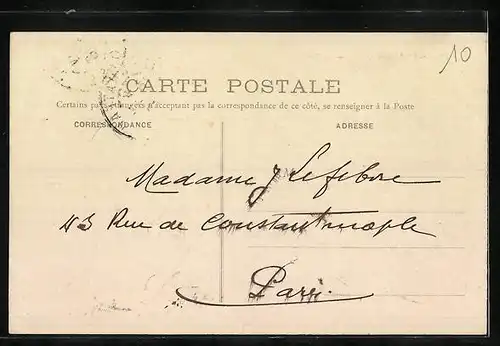 10
CARTE POSTALE
Certains pays étrangers n'acceptant pas la correspondance de ce côté, se renseigner à la Poste
CORRESPONDANCE
ADRESSE
Madame J Lefebvre
43 Rue de Constantinople
Paris.